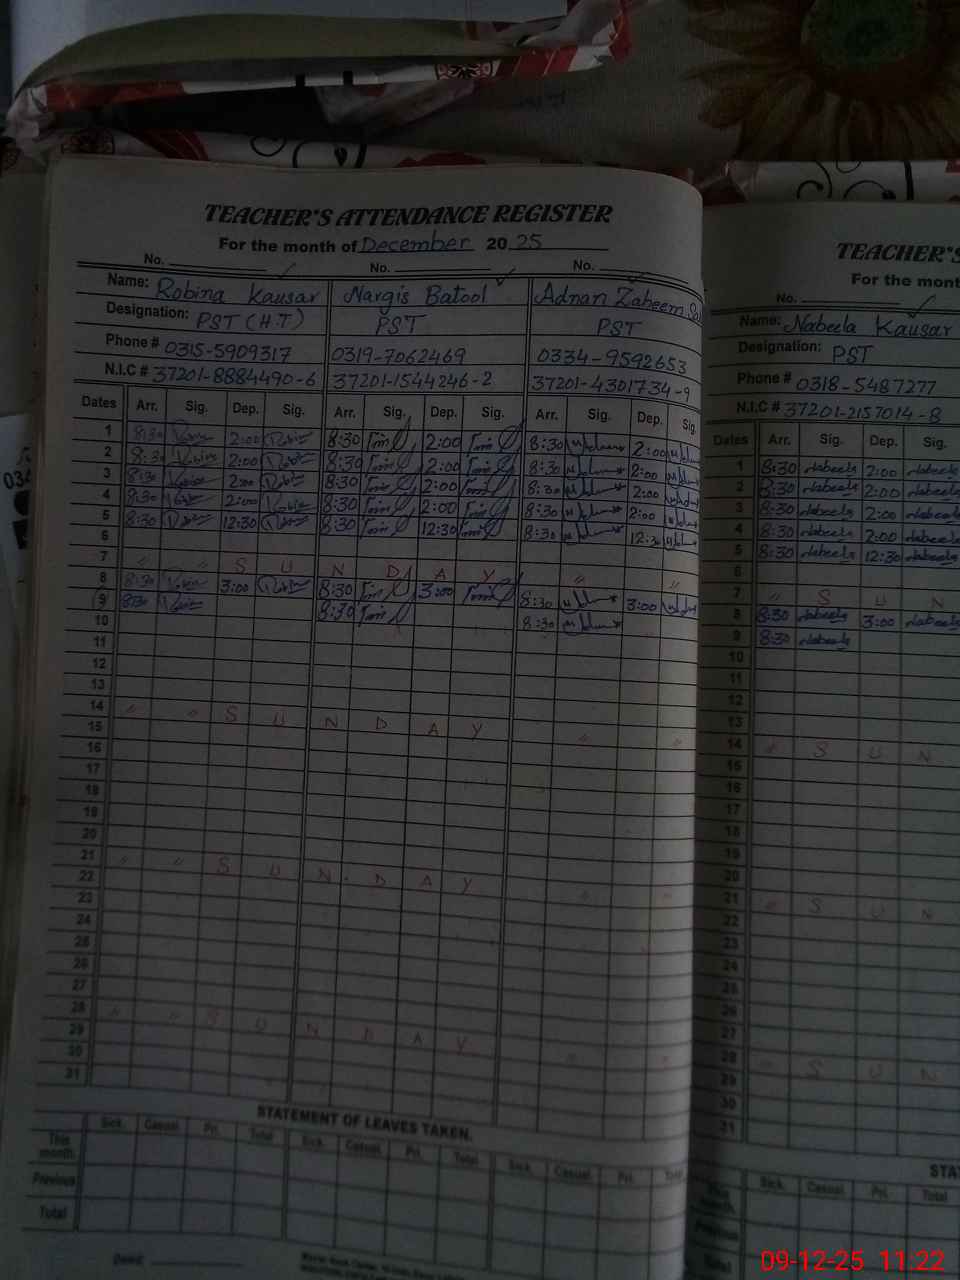 TEACHER'S ATTENDANCE REGISTER
For the month of December 2025
No. No. No.
Name: Robina Kausar Nargis Batool Adnan Zaheem
Designation: PST (H.T) PST PST
Phone # 0315-5909317 0319-7062469 0334-9592653
N.I.C # 37201-8884490-6 37201-1544246-2 37201-4301734-9
Dates Arr. Sig. Dep. Sig. Arr. Sig. Dep. Sig. Arr. Sig. Dep. Sig.
1 8:30 2:00 8:30 2:00 8:30 2:00
2 8:30 2:00 8:30 2:00 8:30 2:00
3 8:30 2:00 8:30 2:00 8:30 2:00
4 8:30 2:00 8:30 2:00 8:30 2:00
5 8:30 12:30 8:30 12:30 8:30 12:30
6
7 " " S U N D A Y " "
8 8:30 3:00 8:30 3:00 8:30 3:00
9 8:30 8:30 8:30
10
11
12
13
14 " " S U N D A Y " "
15
16
17
18
19
20
21 " " S U N D A Y " "
22
23
24
25
26
27
28 " " S U N D A Y " "
29
30
31
STATEMENT OF LEAVES TAKEN.
Sick. Casual. Pri. Total Sick. Casual. Pri. Total Sick. Casual. Pri. Total
This month.
Previous
Total
TEACHER'S
For the mont
No.
Name: Nabeela Kausar
Designation: PST
Phone # 0318-5487277
N.I.C # 37201-2157014-8
Dates Arr. Sig. Dep. Sig.
1 8:30 Nabeela 2:00 Nabeela
2 8:30 Nabeela 2:00 Nabeela
3 8:30 Nabeela 2:00 Nabeela
4 8:30 Nabeela 2:00 Nabeela
5 8:30 Nabeela 12:30 Nabeela
6
7 " S U N
8 8:30 Nabeela 3:00 Nabeela
9 8:30 Nabeela
10
11
12
13
14 " S U N
15
16
17
18
19
20
21 " S U N
22
23
24
25
26
27
28 " S U N
29
30
31
STA
Sick. Casual. Pri. Total
Total
09-12-25 11:22